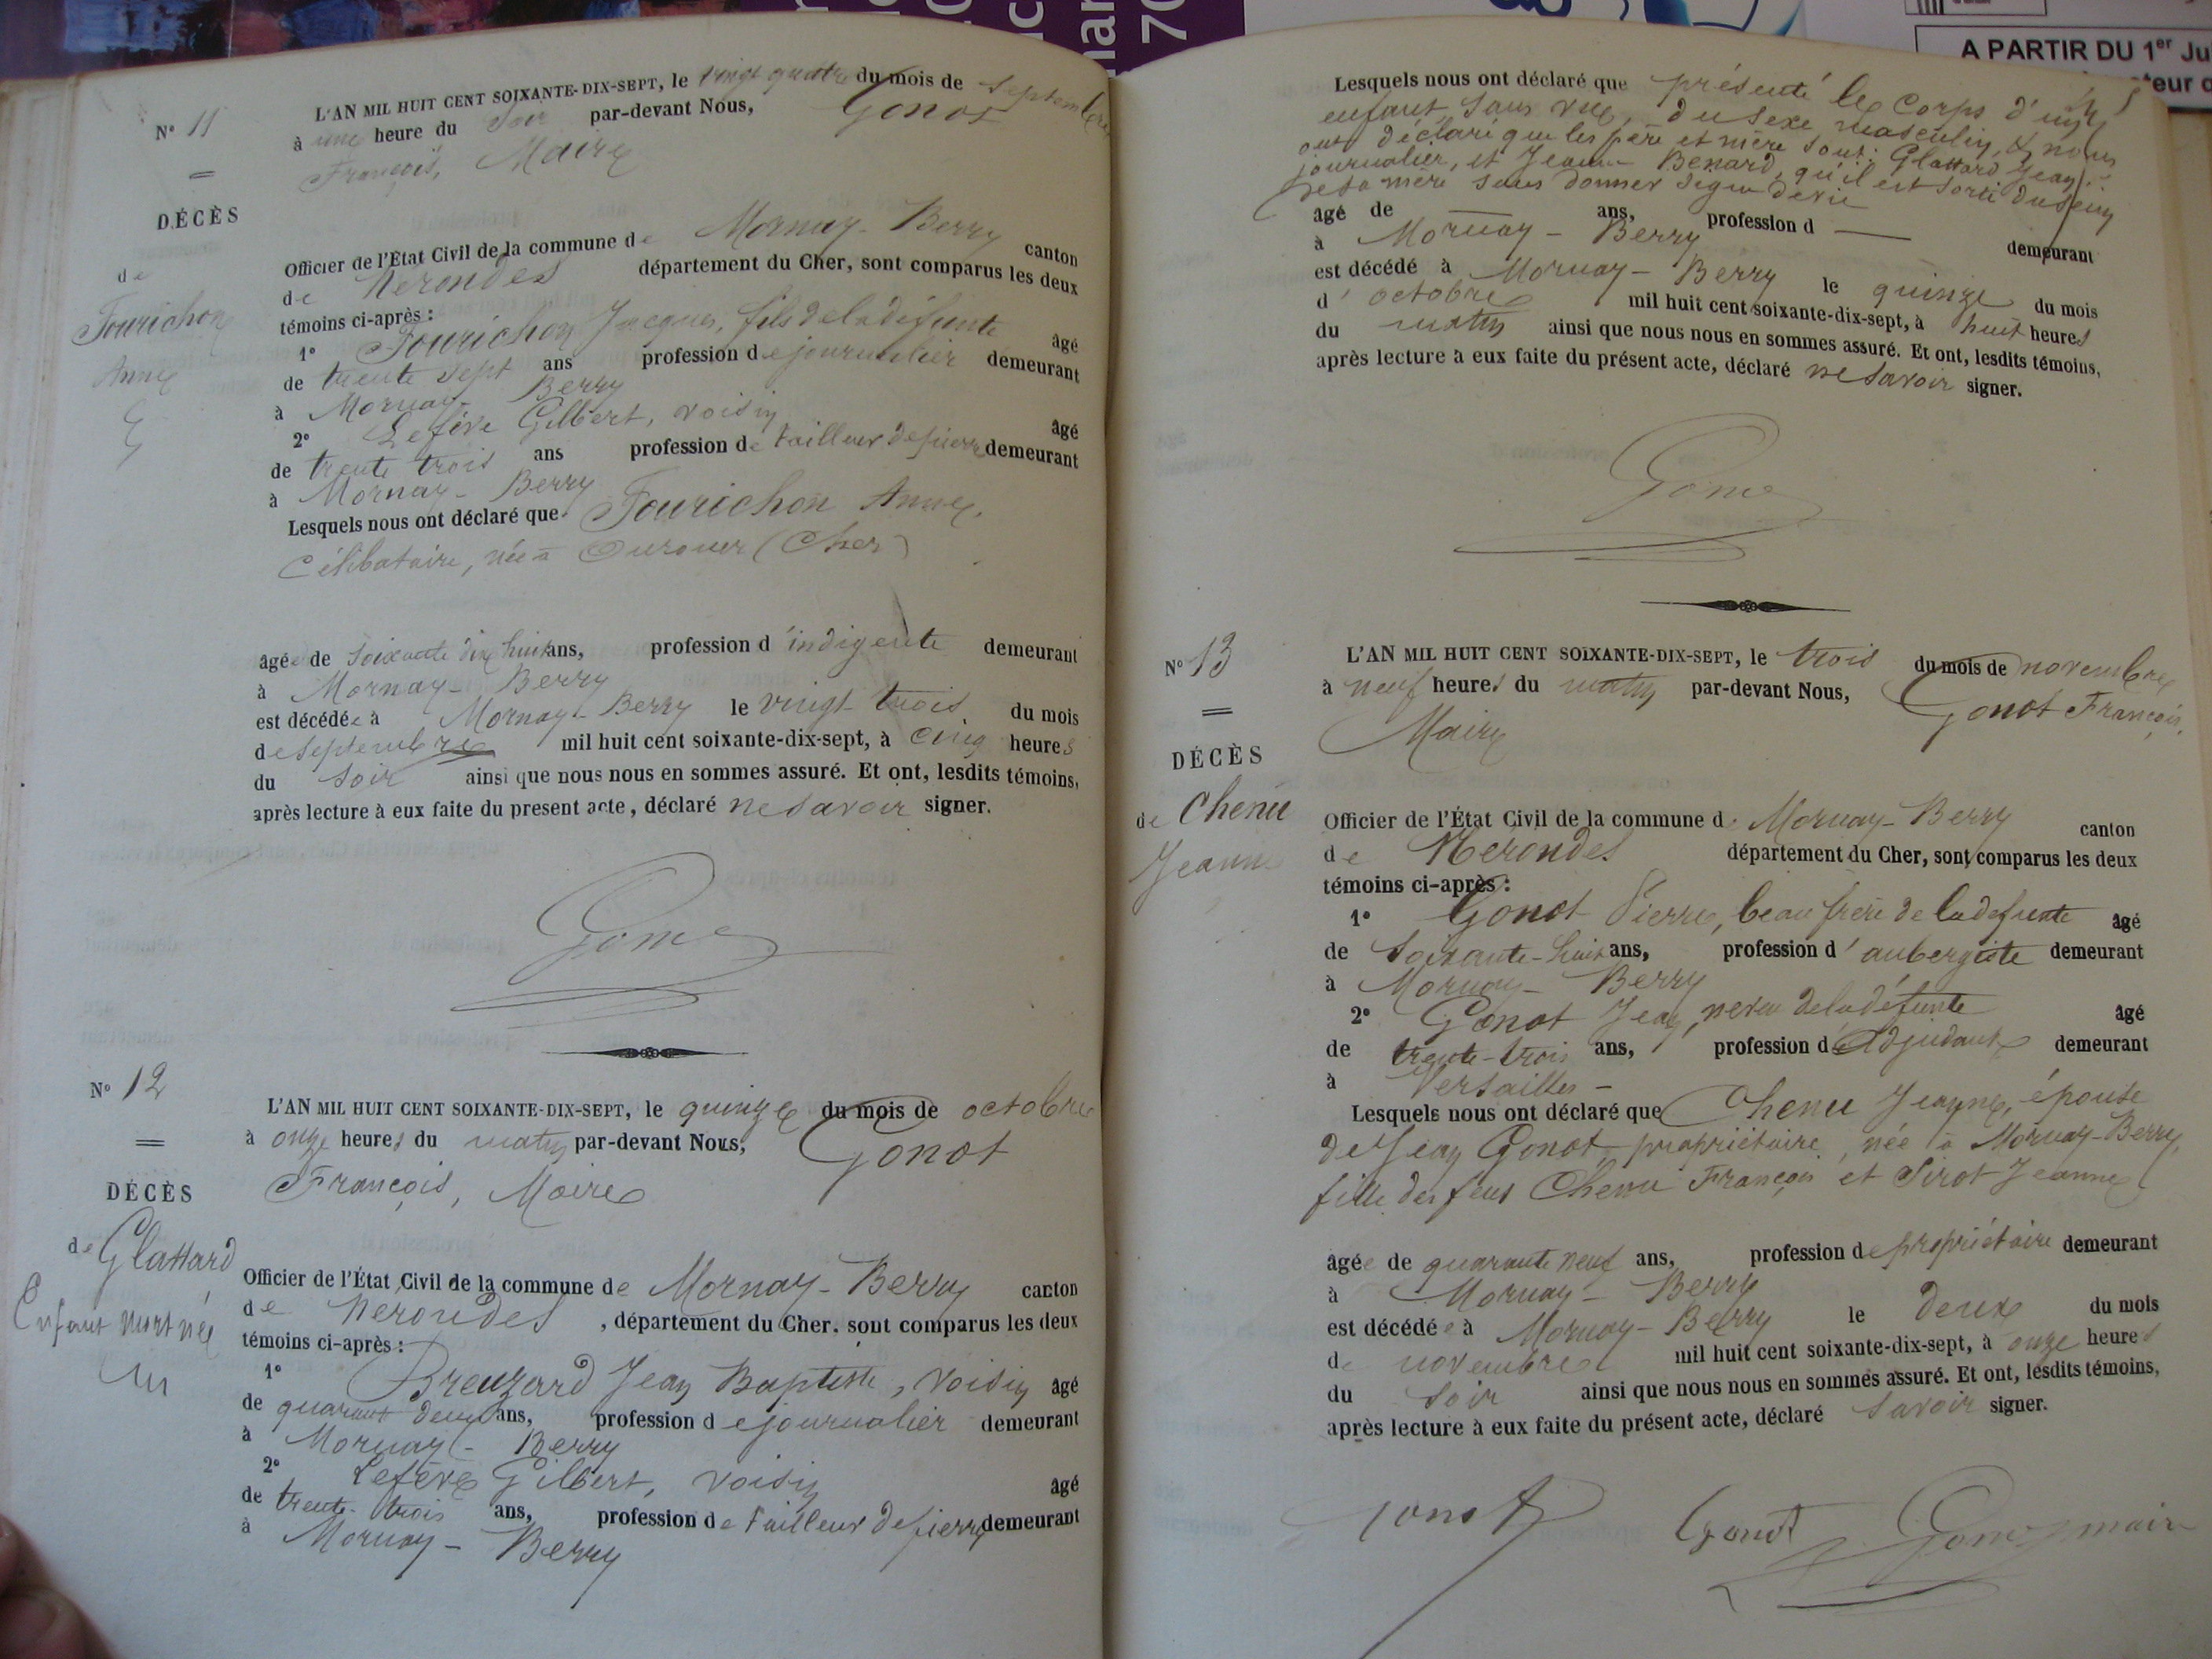 N° 11
L'AN MIL HUIT CENT SOIXANTE-DIX-SEPT, le vingt quatre du mois de Septembre
à une heure du Soir par-devant Nous, Gonot
François, Maire
DÉCÈS
de
Fourichon
Anne
Officier de l'État Civil de la commune de Mornay-Berry canton
de Nérondes département du Cher, sont comparus les deux
témoins ci-après :
1° Fourichon Jacques, fils de la défunte âgé
de trente sept ans profession de journalier demeurant
à Mornay-Berry
2° Lefève Gilbert, voisin âgé
de trente trois ans profession de tailleur de pierre demeurant
à Mornay-Berry
Lesquels nous ont déclaré que Fourichon Anne,
Célibataire, née à Ourouer (Cher)
âgée de soixante dix huit ans, profession d'indigente demeurant
à Mornay-Berry
est décédée à Mornay-Berry le vingt trois du mois
de septembre mil huit cent soixante-dix-sept, à cinq heures
du Soir ainsi que nous nous en sommes assuré. Et ont, lesdits témoins,
après lecture à eux faite du present acte, déclaré ne savoir signer.
N° 12
L'AN MIL HUIT CENT SOIXANTE-DIX-SEPT, le quinze du mois de octobre
à onze heures du matin par-devant Nous, Gonot
François, Maire
DÉCÈS
de Glattard
Enfant mort né
Officier de l'État Civil de la commune de Mornay-Berry canton
de Nérondes, département du Cher, sont comparus les deux
témoins ci-après :
1° Breuzard Jean Baptiste, voisin âgé
de quarant deux ans, profession de journalier demeurant
à Mornay-Berry
2° Lefève Gilbert, voisin âgé
de trente-trois ans, profession de tailleur de pierre demeurant
à Mornay-Berry
Lesquels nous ont déclaré que présenté le corps d'un
enfant sans vie, du sexe masculin, & nous
ont déclaré que les père et mère sont: Glattard Jean,
journalier, et Jeanne Benard, qu'il est sorti du sein
de sa mère sans donner signe de vie
âgé de — ans, profession d — demeurant
à Mornay-Berry
est décédé à Mornay-Berry le quinze du mois
d'octobre mil huit cent soixante-dix-sept, à huit heures
du matin ainsi que nous nous en sommes assuré. Et ont, lesdits témoins,
après lecture à eux faite du présent acte, déclaré ne savoir signer.
N° 13
L'AN MIL HUIT CENT SOIXANTE-DIX-SEPT, le trois du mois de novembre
à neuf heures du matin par-devant Nous, Gonot François,
Maire
DÉCÈS
de Chenu
Jeanne
Officier de l'État Civil de la commune de Mornay-Berry canton
de Nérondes département du Cher, sont comparus les deux
témoins ci-après :
1° Gonot Pierre, beau frère de la defunte âgé
de Soixante-huit ans, profession d'aubergiste demeurant
à Mornay-Berry
2° Gonot Jean, neveu de la défunte âgé
de trente-trois ans, profession d'adjudant demeurant
à Versailles-
Lesquels nous ont déclaré que Chenu Jeanne, épouse
de Jean Gonot propriétaire, née à Mornay-Berry,
fille des feus Chenu François et Sirot Jeanne
âgée de quarante neuf ans, profession de propriétaire demeurant
à Mornay-Berry
est décédée à Mornay-Berry le deux du mois
de novembre mil huit cent soixante-dix-sept, à onze heures
du Soir ainsi que nous nous en sommes assuré. Et ont, lesdits témoins,
après lecture à eux faite du présent acte, déclaré savoir signer.
gonot Gonot maire
A PARTIR DU 1er Ju